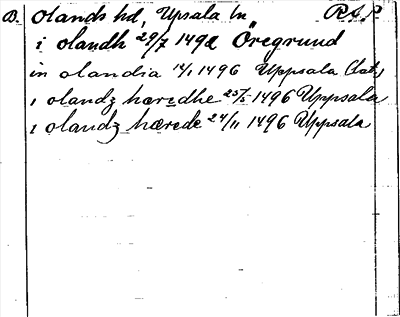 B. Olands hd, Upsala ln R.A.P.
i olandh 29/7 1492 Öregrund
in olandia 14/1 1496 Uppsala (lat.)
i olandz hæredhe 25/5 1496 Uppsala
i olandz hærede 24/11 1496 Uppsala